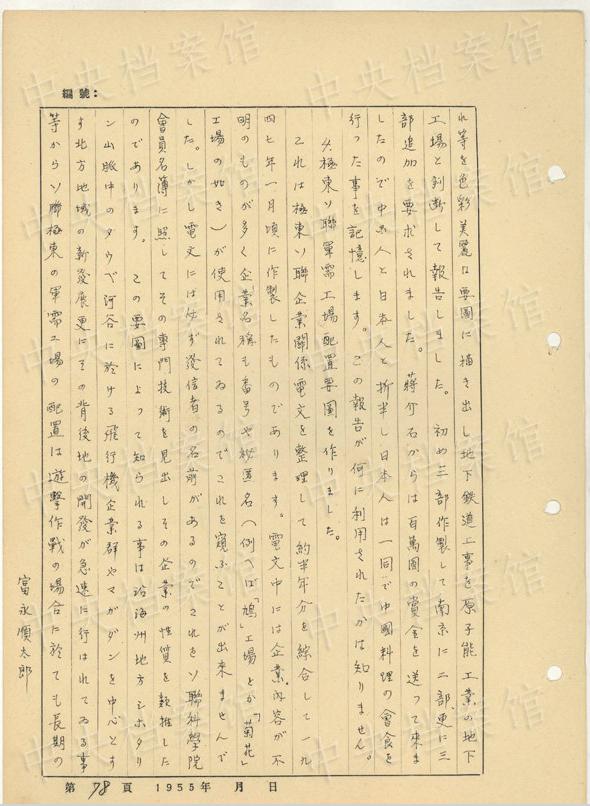 編號：
れ等を色彩美麗な要圖に描き出し地下鉄道工事を原子能工業の地下
工場と判断して報告しました。初め三部作製して南京に二部、更に三
部追加を要求されました。蔣介石からは百萬圓の賞金を送って來ま
したので中国人と日本人と折半し日本人は一同で中国料理の會食を
行った事を記憶します。この報告が何に利用されたかは知りません。
4.極東ソ聯軍需工場配置要圖を作りました。
これは極東ソ聯企業関係電文を整理して約半年分を綜合して一九
四七年一月頃に作製したものであります。電文中には企業内容が不
明のものが多く企業名稱も番号や秘匿名（例へば「鳩」工場とか「菊花」
工場の如き）が使用されてゐるのでこれを窺ふことが出來ませんで
した。しかし電文には必ず發信者の名前があるのでこれをソ聯科學院
會員名簿に照してその専門技術を見出しその企業の性質を類推した
のであります。この要圖によって知られる事は沿海州地方シホタリ
ン山脈中のタウベ河谷に於ける飛行機企業群やマガダンを中心とす
す北方地域の新發展更にその背後地の開發が急速に行はれてゐる事
等からソ聯極東の軍需工場の配置は遊撃作戰の場合に於ても長期の
富永順太郎
第 78 頁 1955年 月 日
中央档案馆